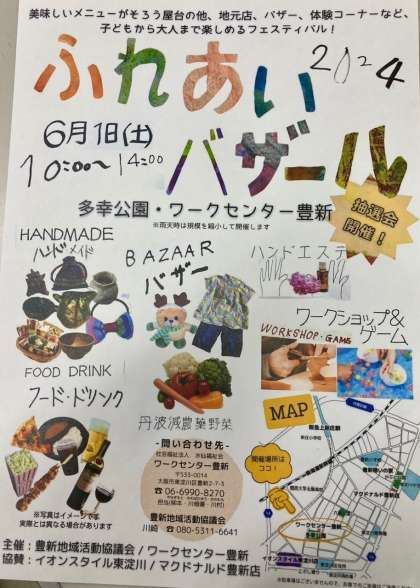 美味しいメニューがそろう屋台の他、地元店、バザー、体験コーナーなど、
子どもから大人まで楽しめるフェスティバル！
ふれあい
2024
バザール
6月1日(土)
10:00〜14:00
多幸公園・ワークセンター豊新
※雨天時は規模を縮小して開催します
抽選会
開催！
HANDMADE
ハンドメイド
BAZAAR
バザー
ハンドエステ
ワークショップ&
ゲーム
WORKSHOP・GAMS
FOOD DRINK
フード・ドリンク
丹波減農薬野菜
MAP
開催場所は
ココ！
マクドナルド豊新店
ワークセンター豊新
多幸公園
イオンスタイル東淀川
-問い合わせ先-
社会福祉法人 水仙福祉会
ワークセンター豊新
〒533-0014
大阪市東淀川区豊新2-7-3
☎ 06-6990-8270
豊新地域活動協議会
川崎 ☎ 080-5311-6641
※写真はイメージです
実際とは異なる場合があります
主催：豊新地域活動協議会 / ワークセンター豊新
協賛：イオンスタイル東淀川 / マクドナルド豊新店